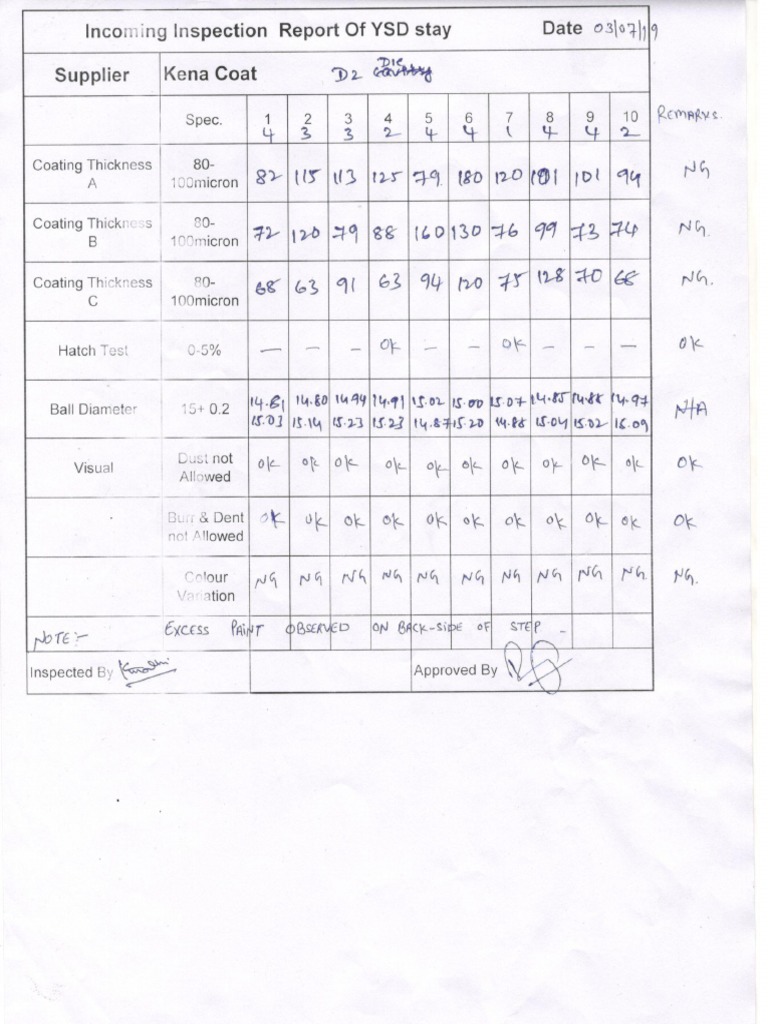 Incoming Inspection Report Of YSD stay Date 03/07/19
Supplier Kena Coat D2 Die
Spec. 1 2 3 4 5 6 7 8 9 10 REMARKS.
4 3 3 2 4 4 1 4 4 2
Coating Thickness A 80-100micron 82 115 113 125 79 180 120 101 101 94 NG
Coating Thickness B 80-100micron 72 120 79 88 160 130 76 99 73 74 NG.
Coating Thickness C 80-100micron 68 63 91 63 94 120 75 128 70 68 NG.
Hatch Test 0-5% — – – OK – – OK – – – OK
Ball Diameter 15+ 0.2 14.81 14.80 14.94 14.91 15.02 15.00 15.07 14.85 14.88 14.97 N/A
15.03 15.14 15.23 15.23 14.87 15.20 14.88 15.04 15.02 15.09
Visual Dust not Allowed OK OK OK OK OK OK OK OK OK OK OK
Burr & Dent not Allowed OK OK OK OK OK OK OK OK OK OK OK
Colour Variation NG NG NG NG NG NG NG NG NG NG NG.
NOTE:- EXCESS PAINT OBSERVED ON BACK-SIDE OF STEP -
Inspected By Approved By